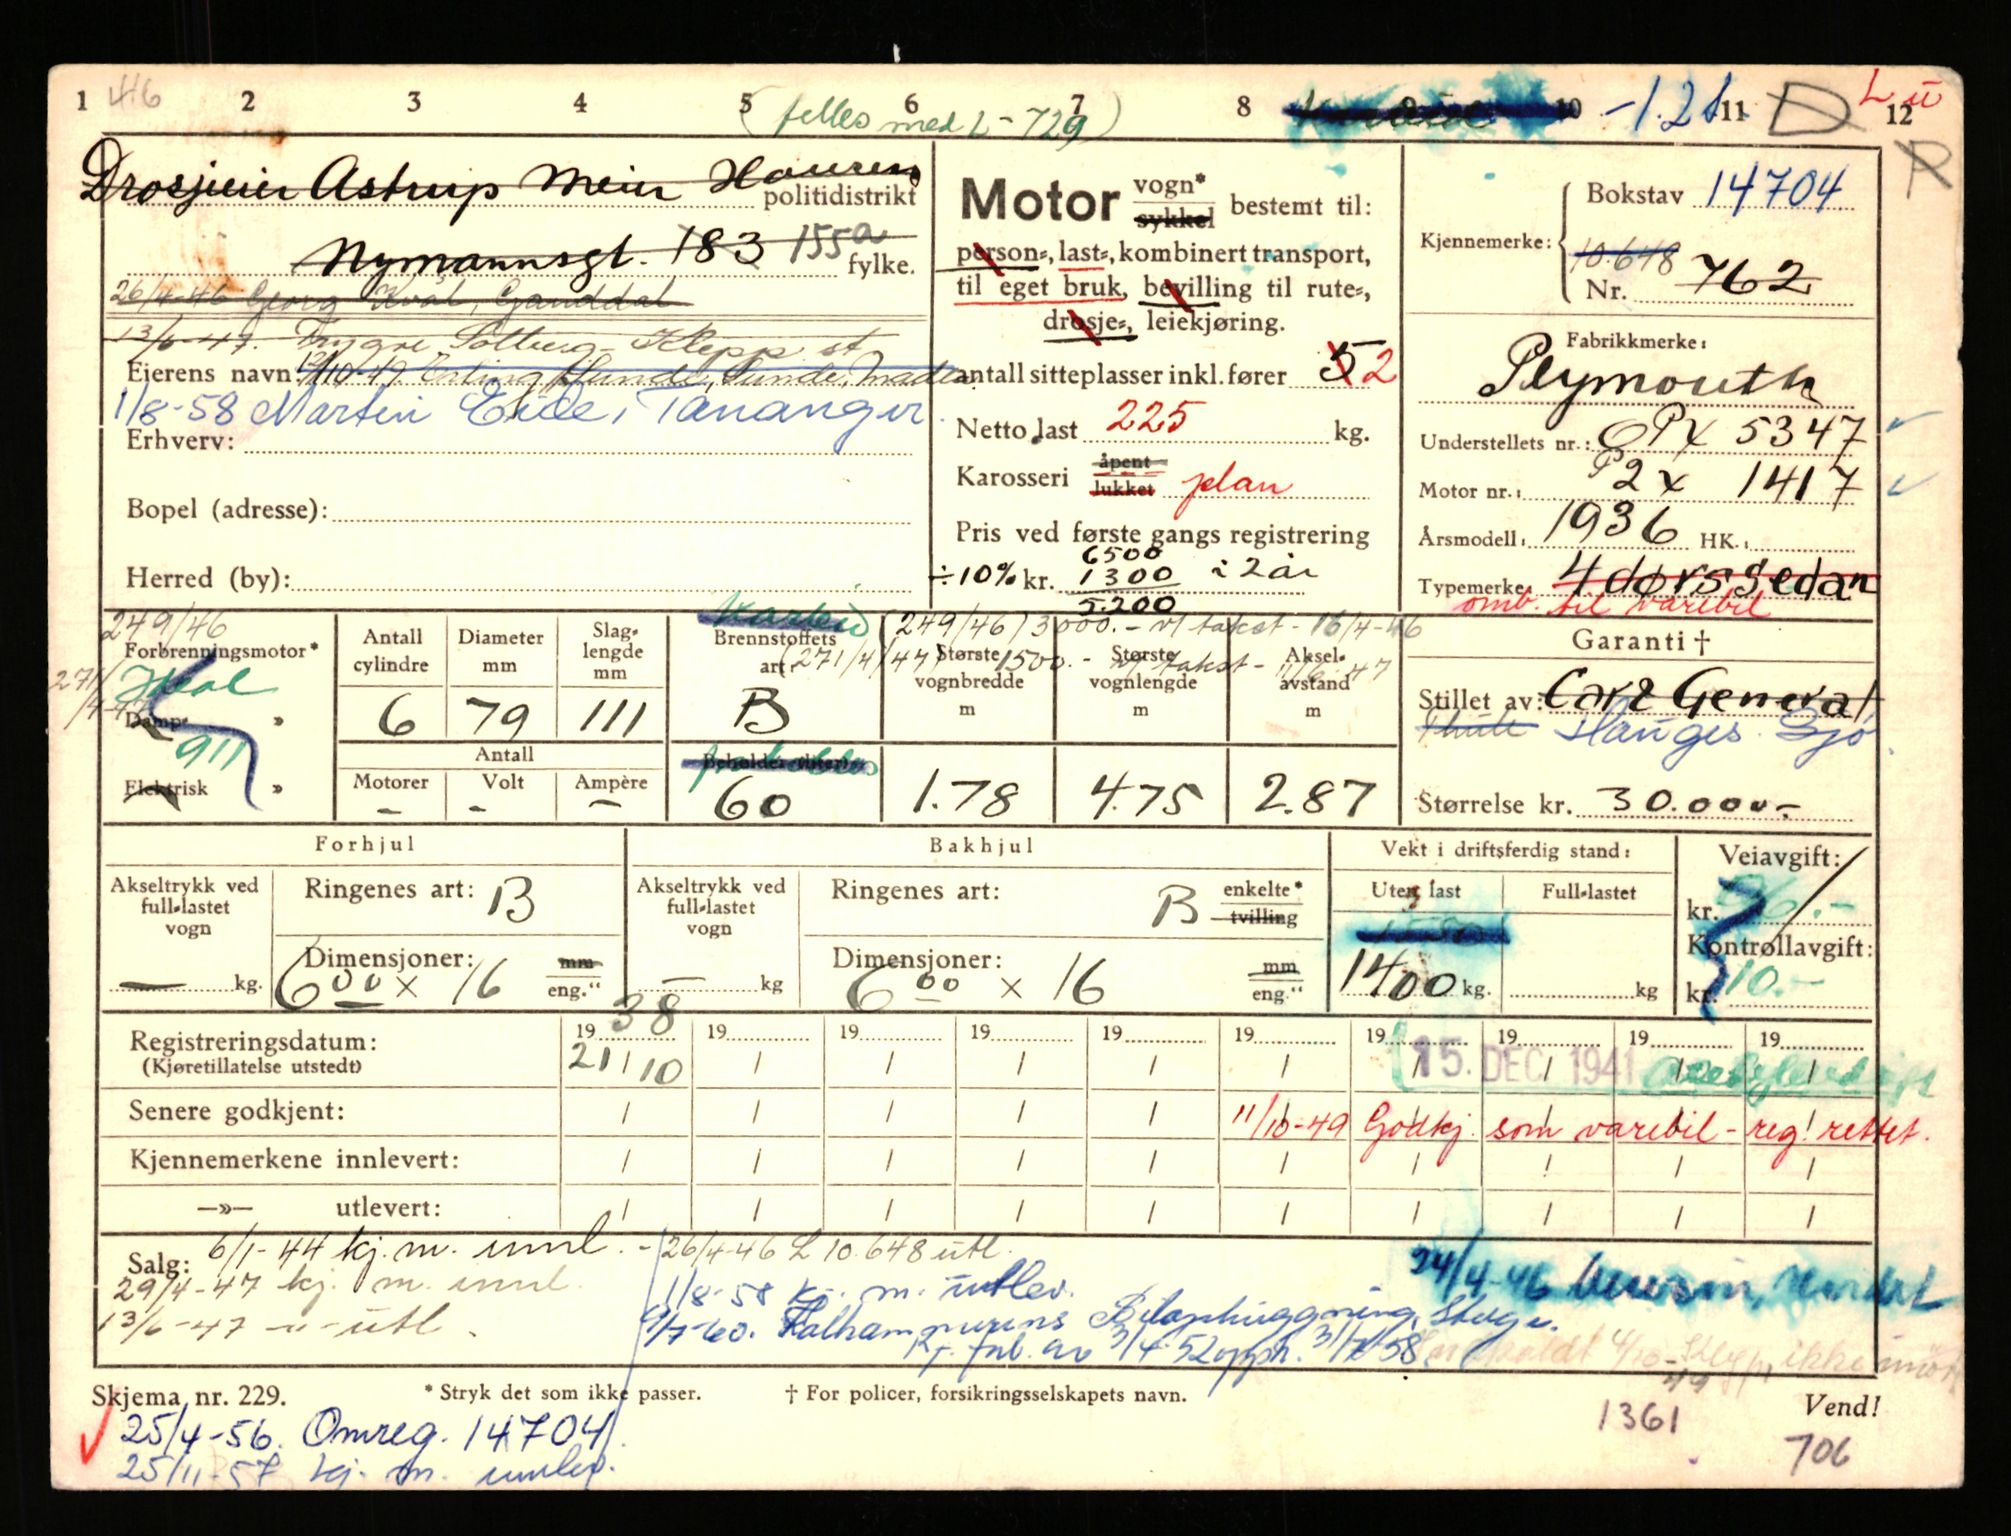 1 2 3 4 5 6 7 8 9 10 11 12
46
(felles med L-729)
-1.21
D
L ü
R
Drosjeeier Astrup Meier Hansen
politidistrikt
Nymannsgt. 183 155a
fylke.
26/4-46 Georg Kvål, Ganddal
13/6-47. Trygve Solberg - Klepp st
Eierens navn 12/10-49 Erling Sunde, Sunde, Madla
1/8-58 Martin Eide, Tananger
Erhverv:
Bopel (adresse):
Herred (by):
Motor vogn* sykkel bestemt til:
person=, last=, kombinert transport,
til eget bruk, bevilling til rute=,
drosje=, leiekjøring.
antall sitteplasser inkl. fører 5 2
Netto last 225 kg.
Karosseri åpent lukket plan
Pris ved første gangs registrering
6500
÷10% kr. 1300 i 2 år
5.200
Bokstav 14704
Kjennemerke:
10.648
Nr. 762
Fabrikkmerke:
Plymouth
Understellets nr.: 5347
Motor nr.: P2x 1417
Årsmodell: 1936 HK.:
Typemerke: 4dørs Sedan
omb. til varebil
249/46
Forbrenningsmotor*
271/4-47
Damp= »
911
Elektrisk »
Antall cylindre
6
Diameter mm
79
Slag=lengde mm
111
Antall
Motorer Volt Ampère
- - -
Karbid
Brennstoffets art
B
Beholder (liter)
60
(249/46) 3000.- v/ takst - 16/4-46
(271/4/47) 1500.- v/ takst - 11/6-47
Største vognbredde m
1.78
Største vognlengde m
4.75
Aksel=avstand m
2.87
Garanti †
Stillet av: Carl General
Hauges. Sjø.
Størrelse kr. 30.000.-
Forhjul
Akseltrykk ved full=lastet vogn
— kg.
Ringenes art: B
Dimensjoner: 6.00 x 16 mm eng."
Bakhjul
Akseltrykk ved full=lastet vogn
— kg
Ringenes art: B enkelte* tvilling
Dimensjoner: 6.00 x 16 mm eng."
Vekt i driftsferdig stand:
Uten last Full=lastet
1400 kg. kg
Veiavgift:
kr. 36.-
Kontrollavgift:
kr. 10.-
Registreringsdatum: 19 38 19 19 19 19 19 19 19 19 19
(Kjøretillatelse utstedt) 21/10
15. DEC. 1941
Senere godkjent: 11/10-49 Godkj. som varebil - reg. rettet.
Kjennemerkene innlevert:
—»— utlevert:
Salg: 6/1-44 kj. m. innl. - 26/4-46 L 10.648 utl.
29/4-47 kj. m. innl.
13/6-47 -"- utl.
1/8-58 kj. m. utlev.
24/4-46
9/7-60. Kalhammerens Bilophuggning, Stvgr.
Skjema nr. 229.
* Stryk det som ikke passer.
† For policer, forsikringsselskapets navn.
Vend!
25/4-56. Omreg. 14704
25/11-57 kj. m. innlev.
1361
706